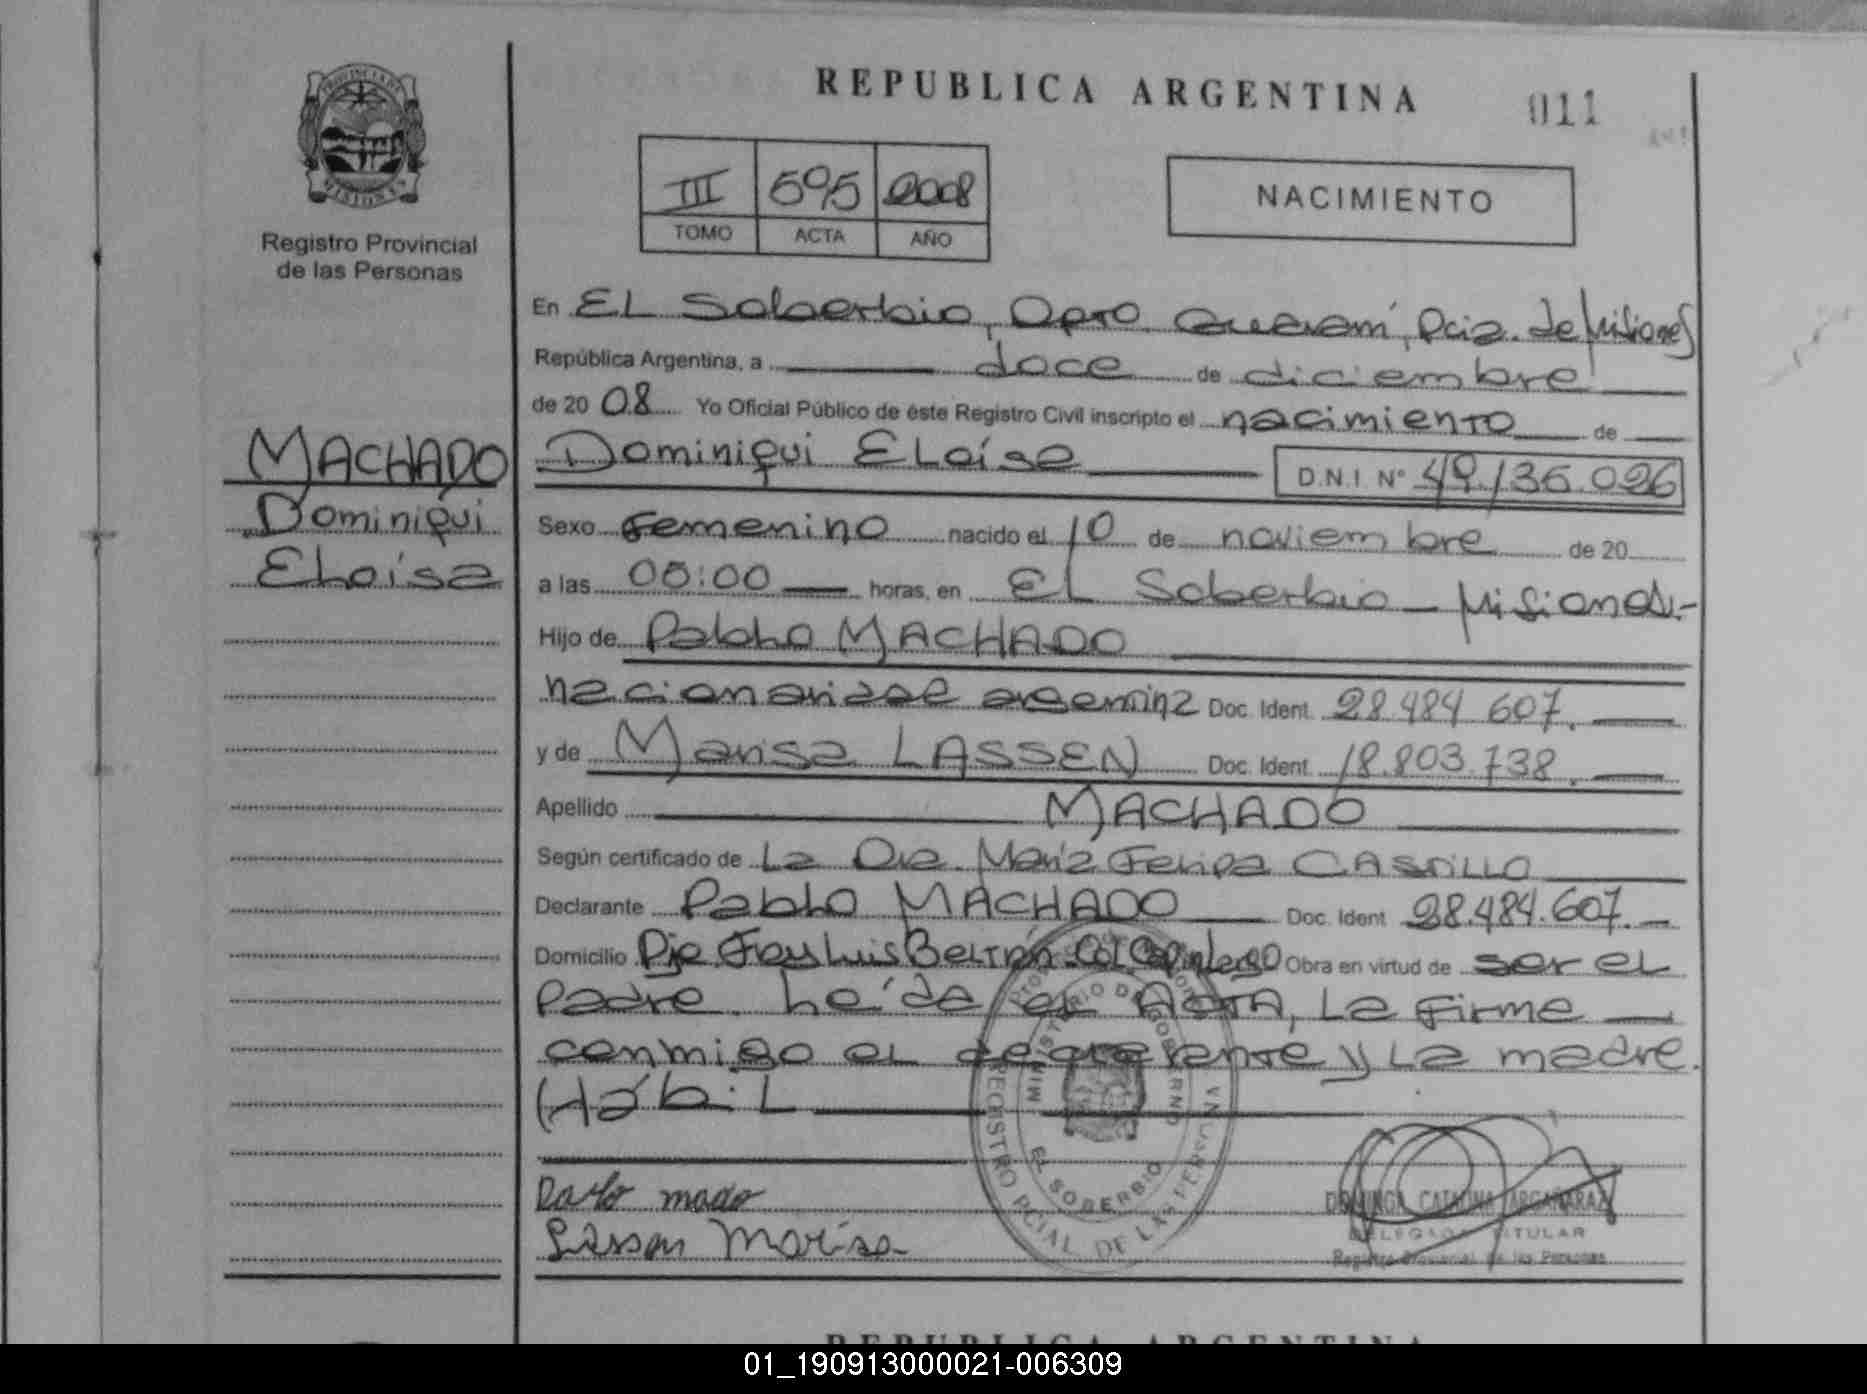 REPUBLICA ARGENTINA
011
III 595 2008
TOMO ACTA AÑO
NACIMIENTO
PROVINCIA DE MISIONES
Registro Provincial
de las Personas
En EL Soberbio, Dpto. Guaraní, Pcia. de Misiones
República Argentina, a doce de diciembre
de 20 08 Yo Oficial Público de éste Registro Civil inscripto el nacimiento de
Dominiqui ELoísa D.N.I. Nº 49.135.026
MACHADO
Dominiqui
ELoísa
Sexo Femenino nacido el 10 de noviembre de 20
a las 05:00 horas, en EL Soberbio - Misiones.-
Hijo de Pablo MACHADO
nacionalidad argentina Doc. Ident. 28.484 607.
y de Marisa LASSEN Doc. Ident. 18.803.738.
Apellido MACHADO
Según certificado de La Dra. María Felipa CASTILLO
Declarante Pablo MACHADO Doc. Ident 28.484.607.
Domicilio Pje Fray Luis Beltrán Col Obra en virtud de ser eL
Padre. Leída eL ACTA, La firma
conmigo eL declarante y La madre.
(Hábil
MINISTERIO DE GOBIERNO
REGISTRO PCIAL DE LAS PERSONAS
EL SOBERBIO
Lassen Marisa
DOMINGA CATALINA ARGAÑARAZ
DELEGADA TITULAR
Registro Provincial de las Personas
REPUBLICA ARGENTINA
01_190913000021-006309